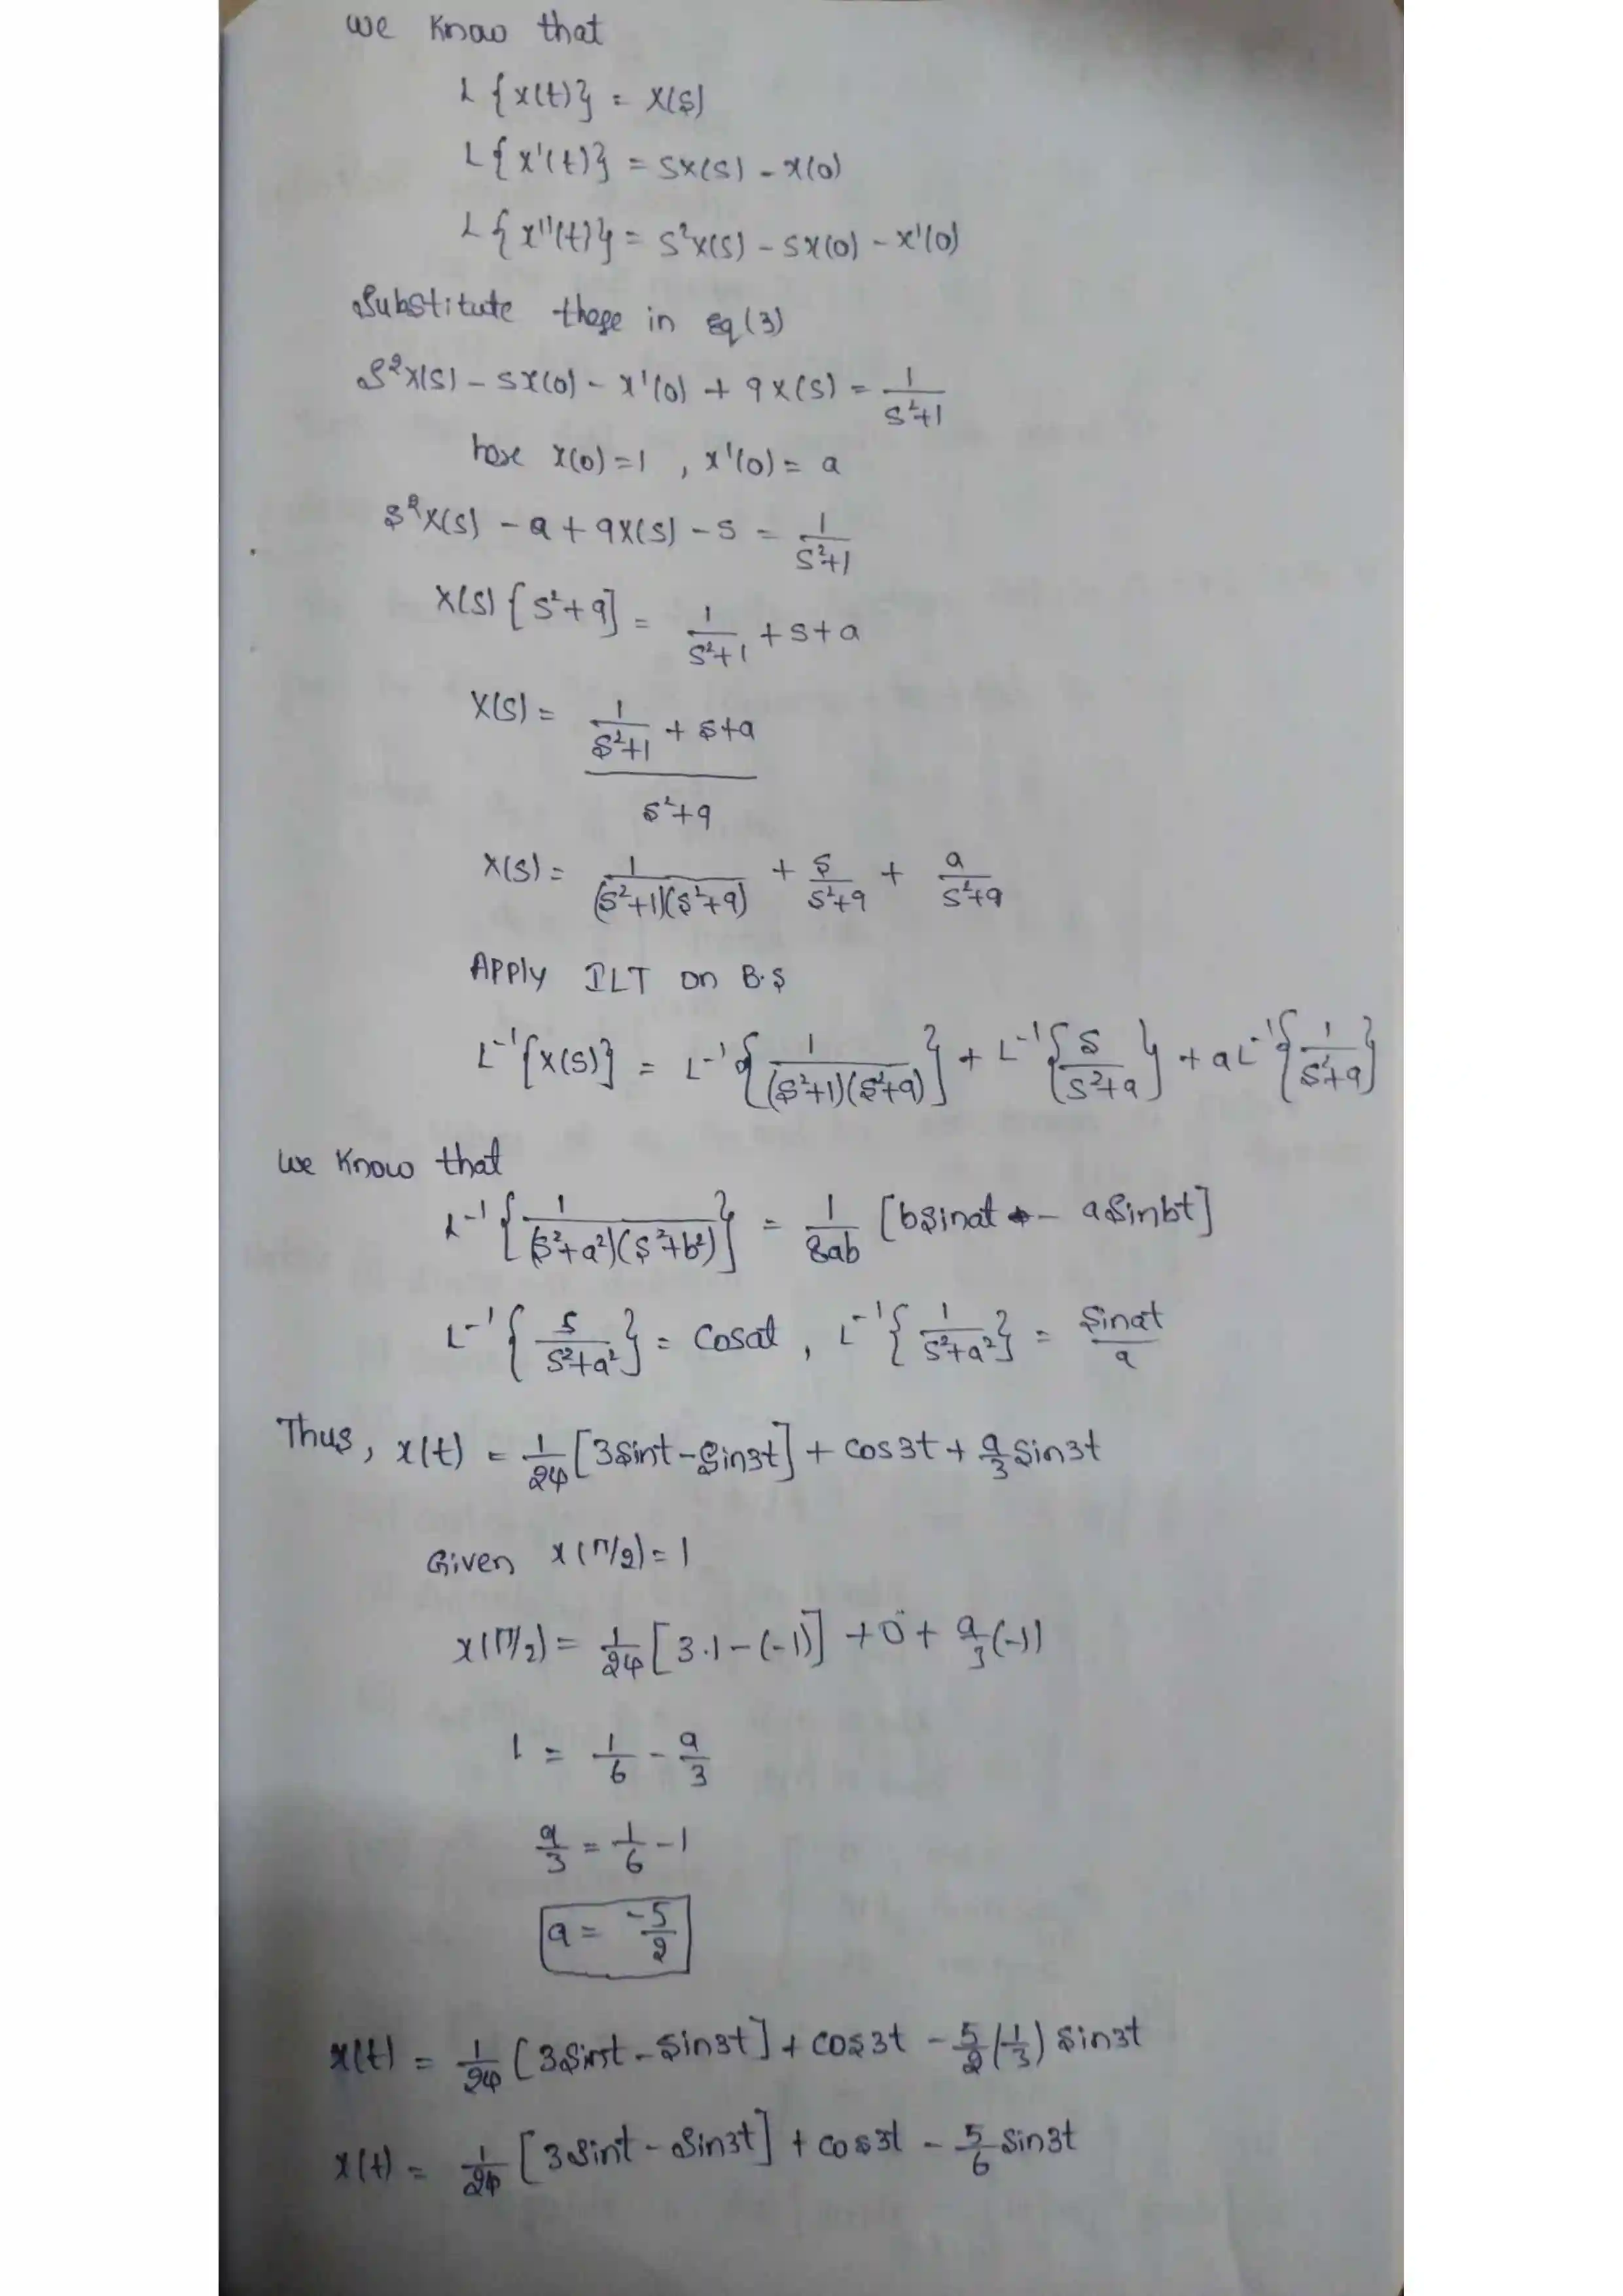 we know that
L{x(t)} = X(s)
L{x'(t)} = sX(s) - x(0)
L{x''(t)} = s²X(s) - sx(0) - x'(0)
Substitute these in Eq(3)
s²X(s) - sx(0) - x'(0) + 9X(s) = 1/(s²+1)
here x(0)=1, x'(0)= a
s²X(s) - a + 9X(s) - s = 1/(s²+1)
X(s)[s²+9] = 1/(s²+1) + s+a
X(s) = (1/(s²+1) + s+a)/(s²+9)
X(s) = 1/((s²+1)(s²+9)) + s/(s²+9) + a/(s²+9)
Apply ILT on B.S
L⁻¹{X(s)} = L⁻¹{1/((s²+1)(s²+9))} + L⁻¹{s/(s²+9)} + aL⁻¹{1/(s²+9)}
we know that
L⁻¹{1/((s²+a²)(s²+b²))} = 1/8ab [bsinat - asinbt]
L⁻¹{s/(s²+a²)} = cosat, L⁻¹{1/(s²+a²)} = sinat/a
Thus, x(t) = 1/24 [3sint - sin3t] + cos3t + a/3 sin3t
Given x(π/2)=1
x(π/2) = 1/24 [3.1-(-1)] + 0 + a/3(-1)
1 = 1/6 - a/3
a/3 = 1/6 - 1
a = -5/2
x(t) = 1/24 [3sint - sin3t] + cos3t - 5/2(1/3) sin3t
x(t) = 1/24 [3sint - sin3t] + cos3t - 5/6 sin3t